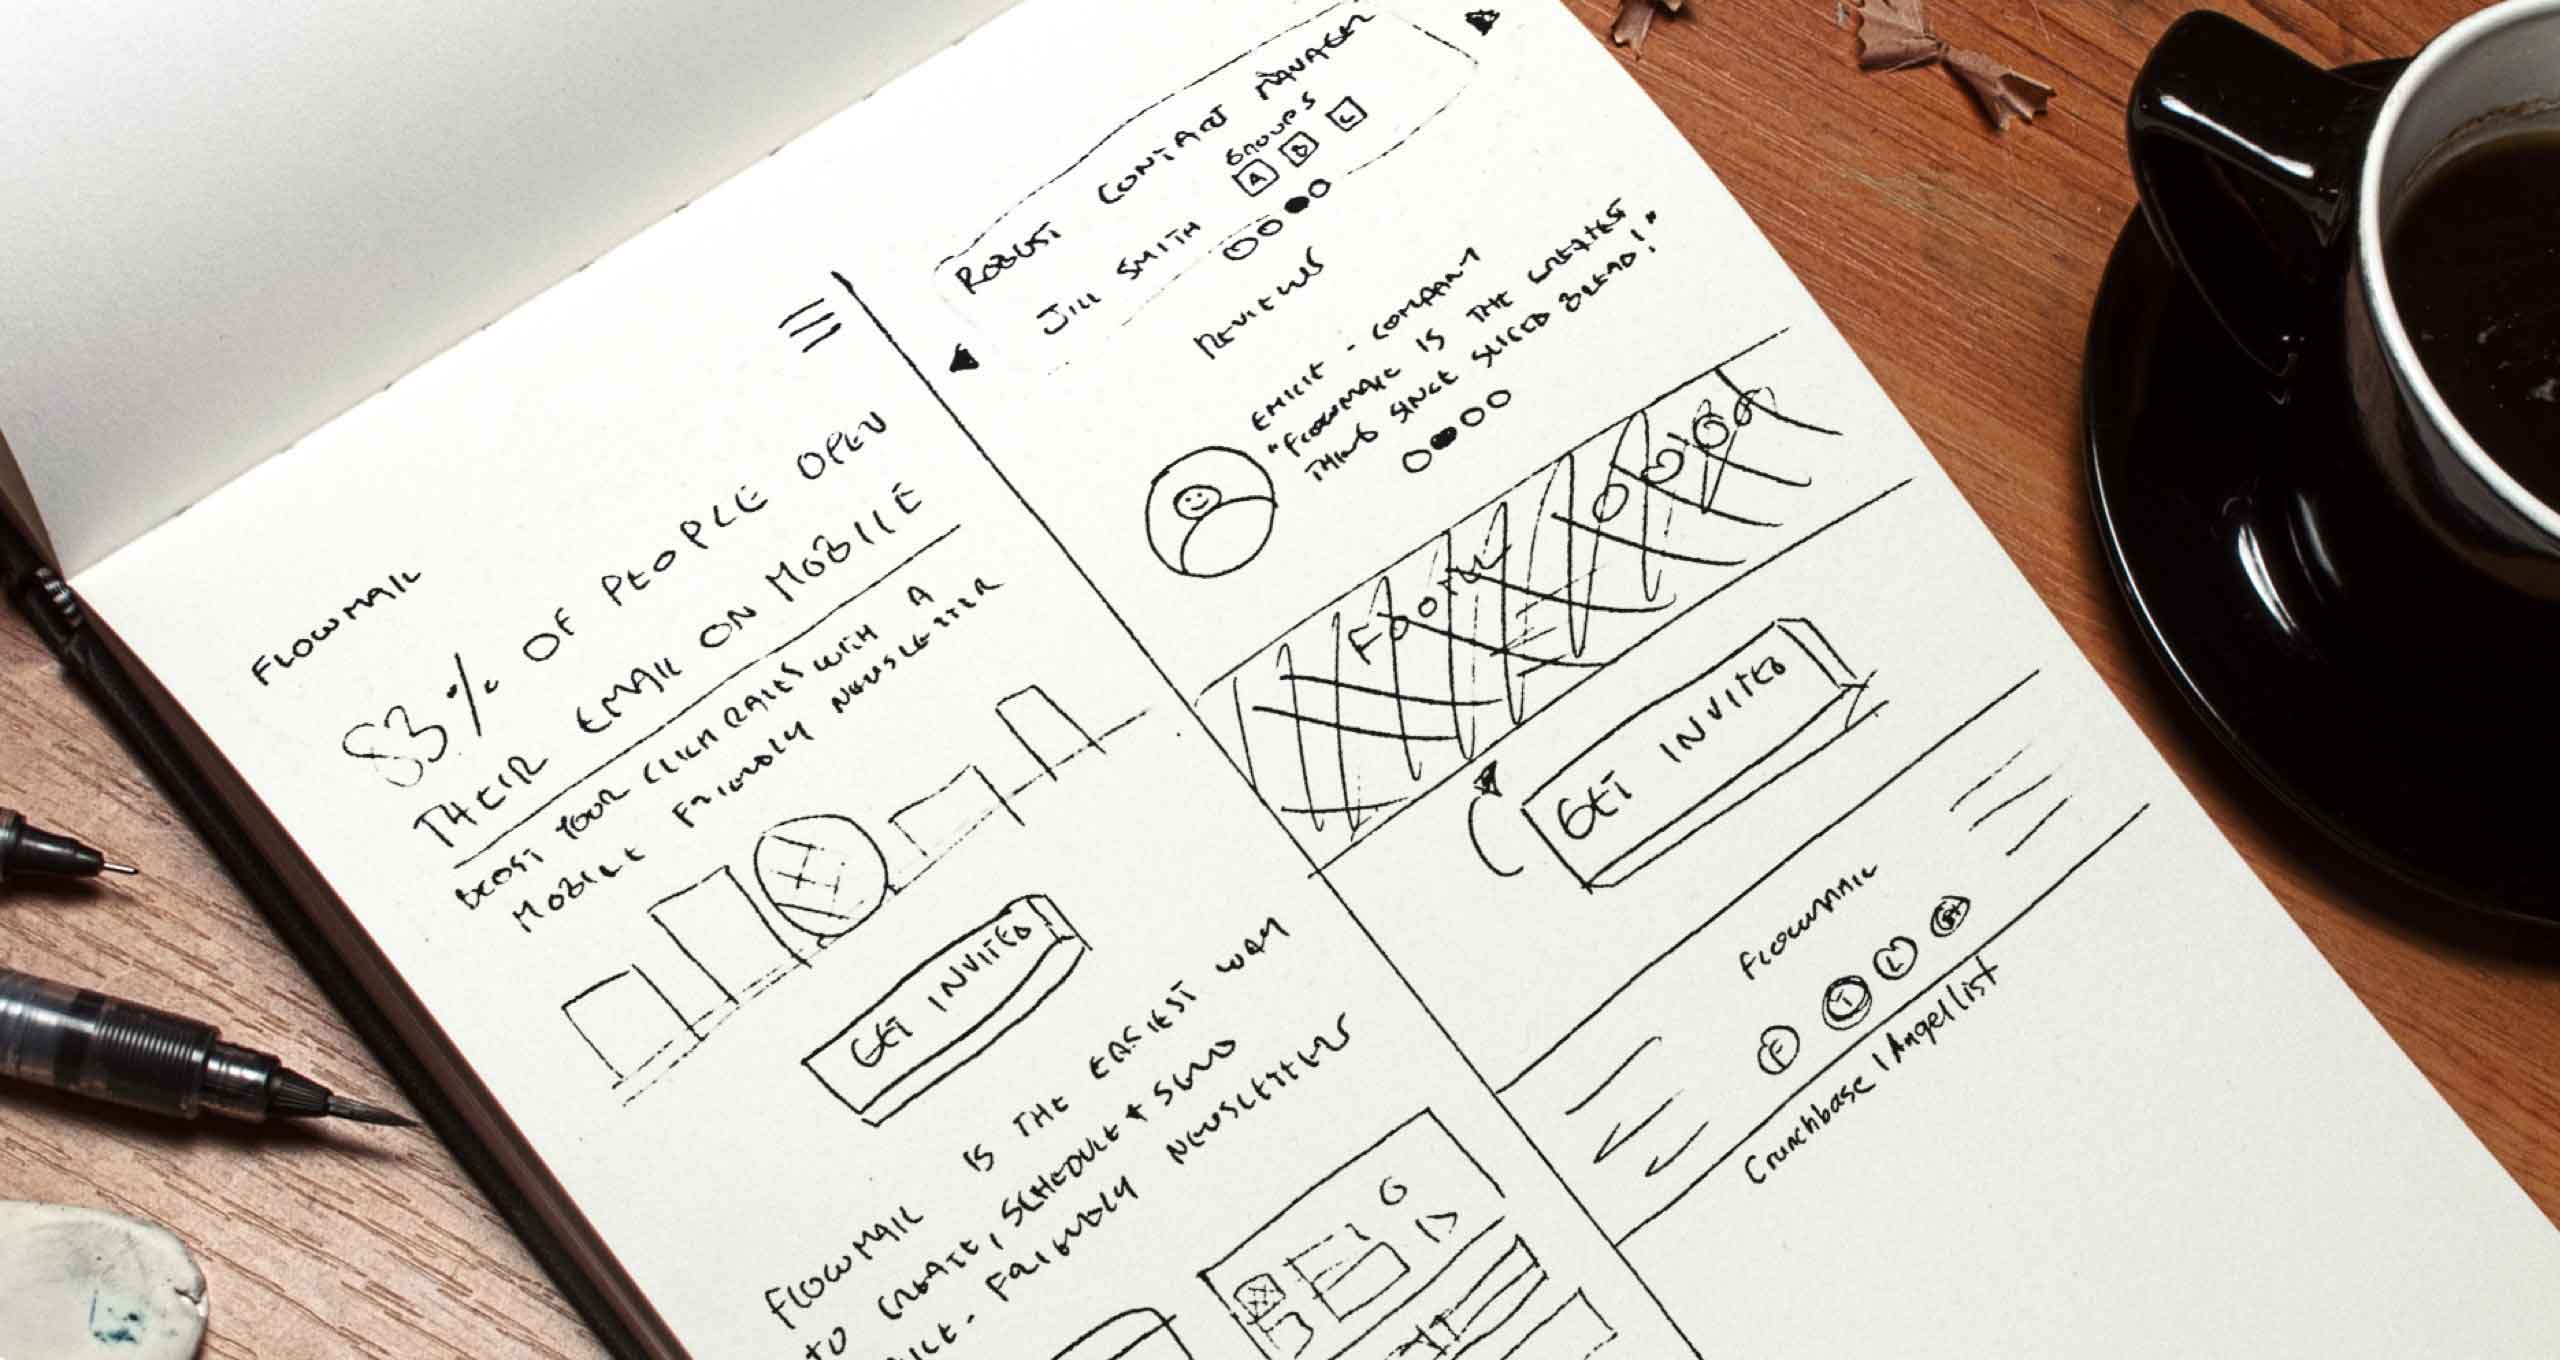 FLOWMAIL
83% OF PEOPLE OPEN
THEIR EMAIL ON MOBILE
BOOST YOUR CLICK RATES WITH A
MOBILE FRIENDLY NEWSLETTER
GET INVITED
FLOWMAIL IS THE EASIEST WAY
TO CREATE, SCHEDULE + SEND
FRIENDLY NEWSLETTERS
ROBUST CONTACT MANAGER
GROUPS
JILL SMITH
A B C
REVIEWS
EMILIE - COMPANY
"FLOWMAIL IS THE GREATEST
THING SINCE SLICED BREAD!"
GET INVITED
FLOWMAIL
F T L
Crunchbase | Angellist